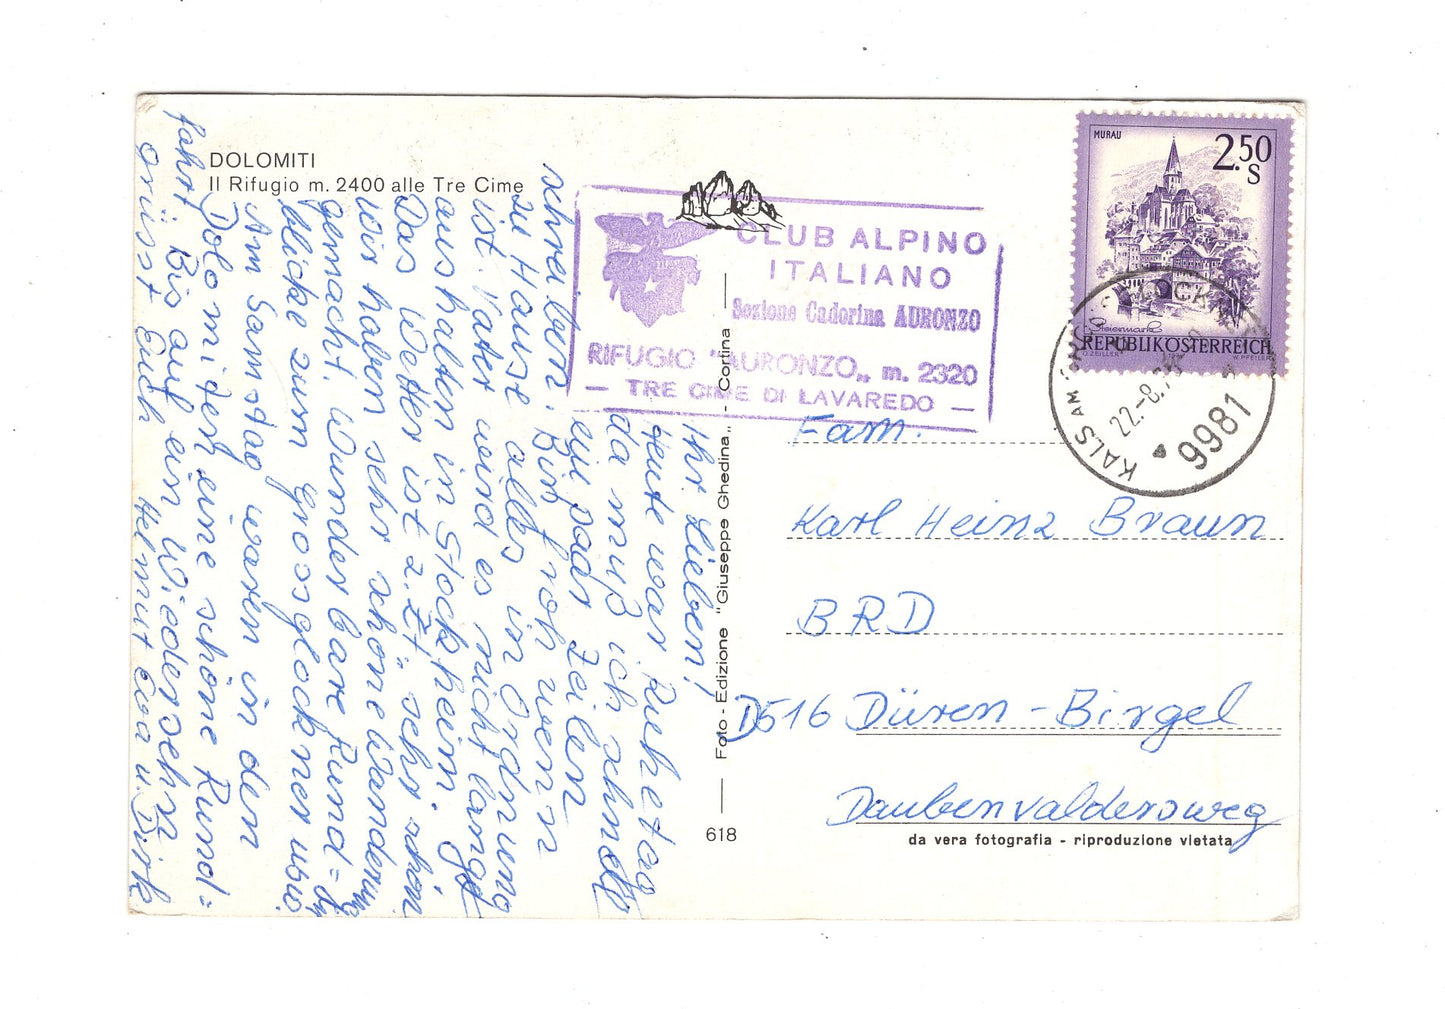 DOLOMITI
Il Rifugio m. 2400 alle Tre Cime
CLUB ALPINO
ITALIANO
Sezione Cadorina AURONZO
RIFUGIO "AURONZO„ m. 2320
— TRE CIME DI LAVAREDO —
MURAU
2.50
S
Steiermark
REPUBLIK ÖSTERREICH
O. ZEILER
W. PFEILER
KALS AM
22.-8.
9981
Ihr Lieben!
Heute war Ruhetag
da muß ich schnell
ein paar Zeilen
schreiben. Bin froh wenn
zu Hause alles in Ordnung
ist. Vater wird es nicht lange
aushalten in Stockheim.
Das Wetter ist z. Zt. sehr schön
wir haben sehr schöne Wanderung
gemacht. Wunderbare Rund=
blicke zum Grossglockner usw.
Am Samstag waren in den
Dolomiten eine schöne Rund=
fahrt. Bis auf ein Wiedersehn
grüsst Euch Helmut Eva u. Dirk
Foto - Edizione "Giuseppe Ghedina„ - Cortina
618
Fam.
Karl Heinz Braun
BRD
D516 Düren - Birgel
Daubenvaldersweg
da vera fotografia - riproduzione vietata